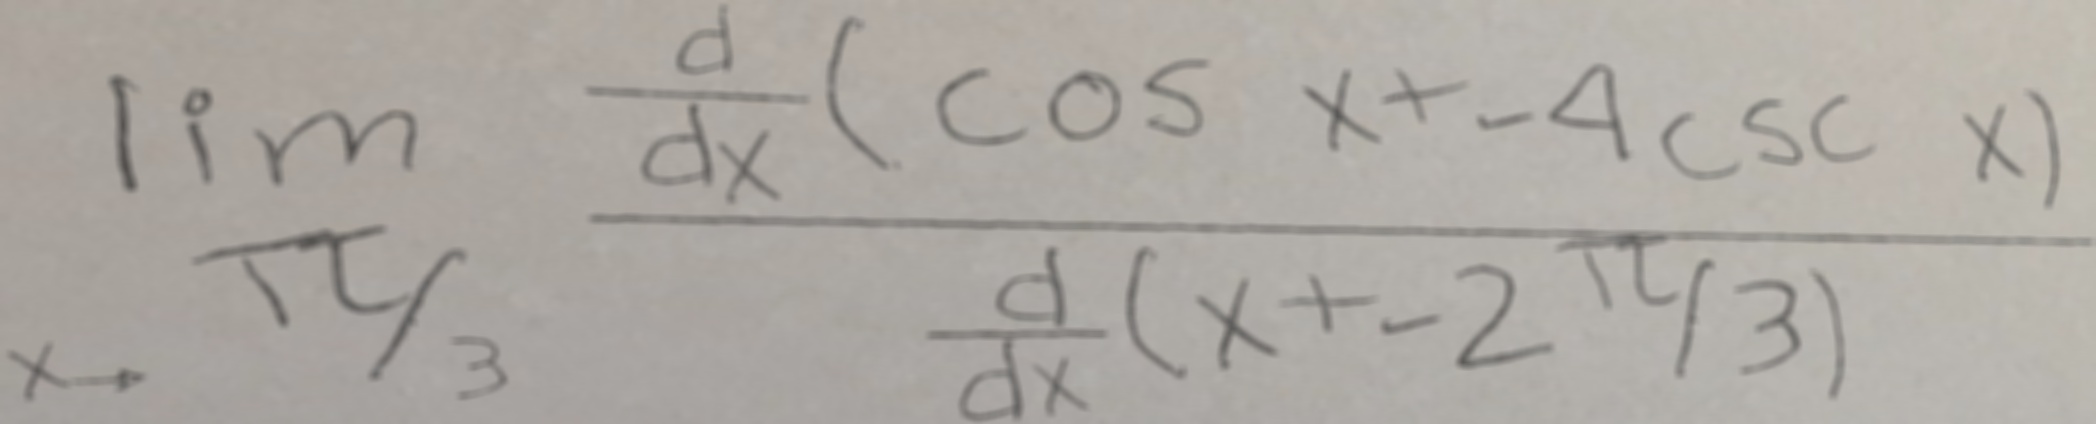 \lim_{x \to \pi/3} \frac{\frac{d}{dx}(\cos x + -4\csc x)}{\frac{d}{dx}(x + -2\pi/3)}